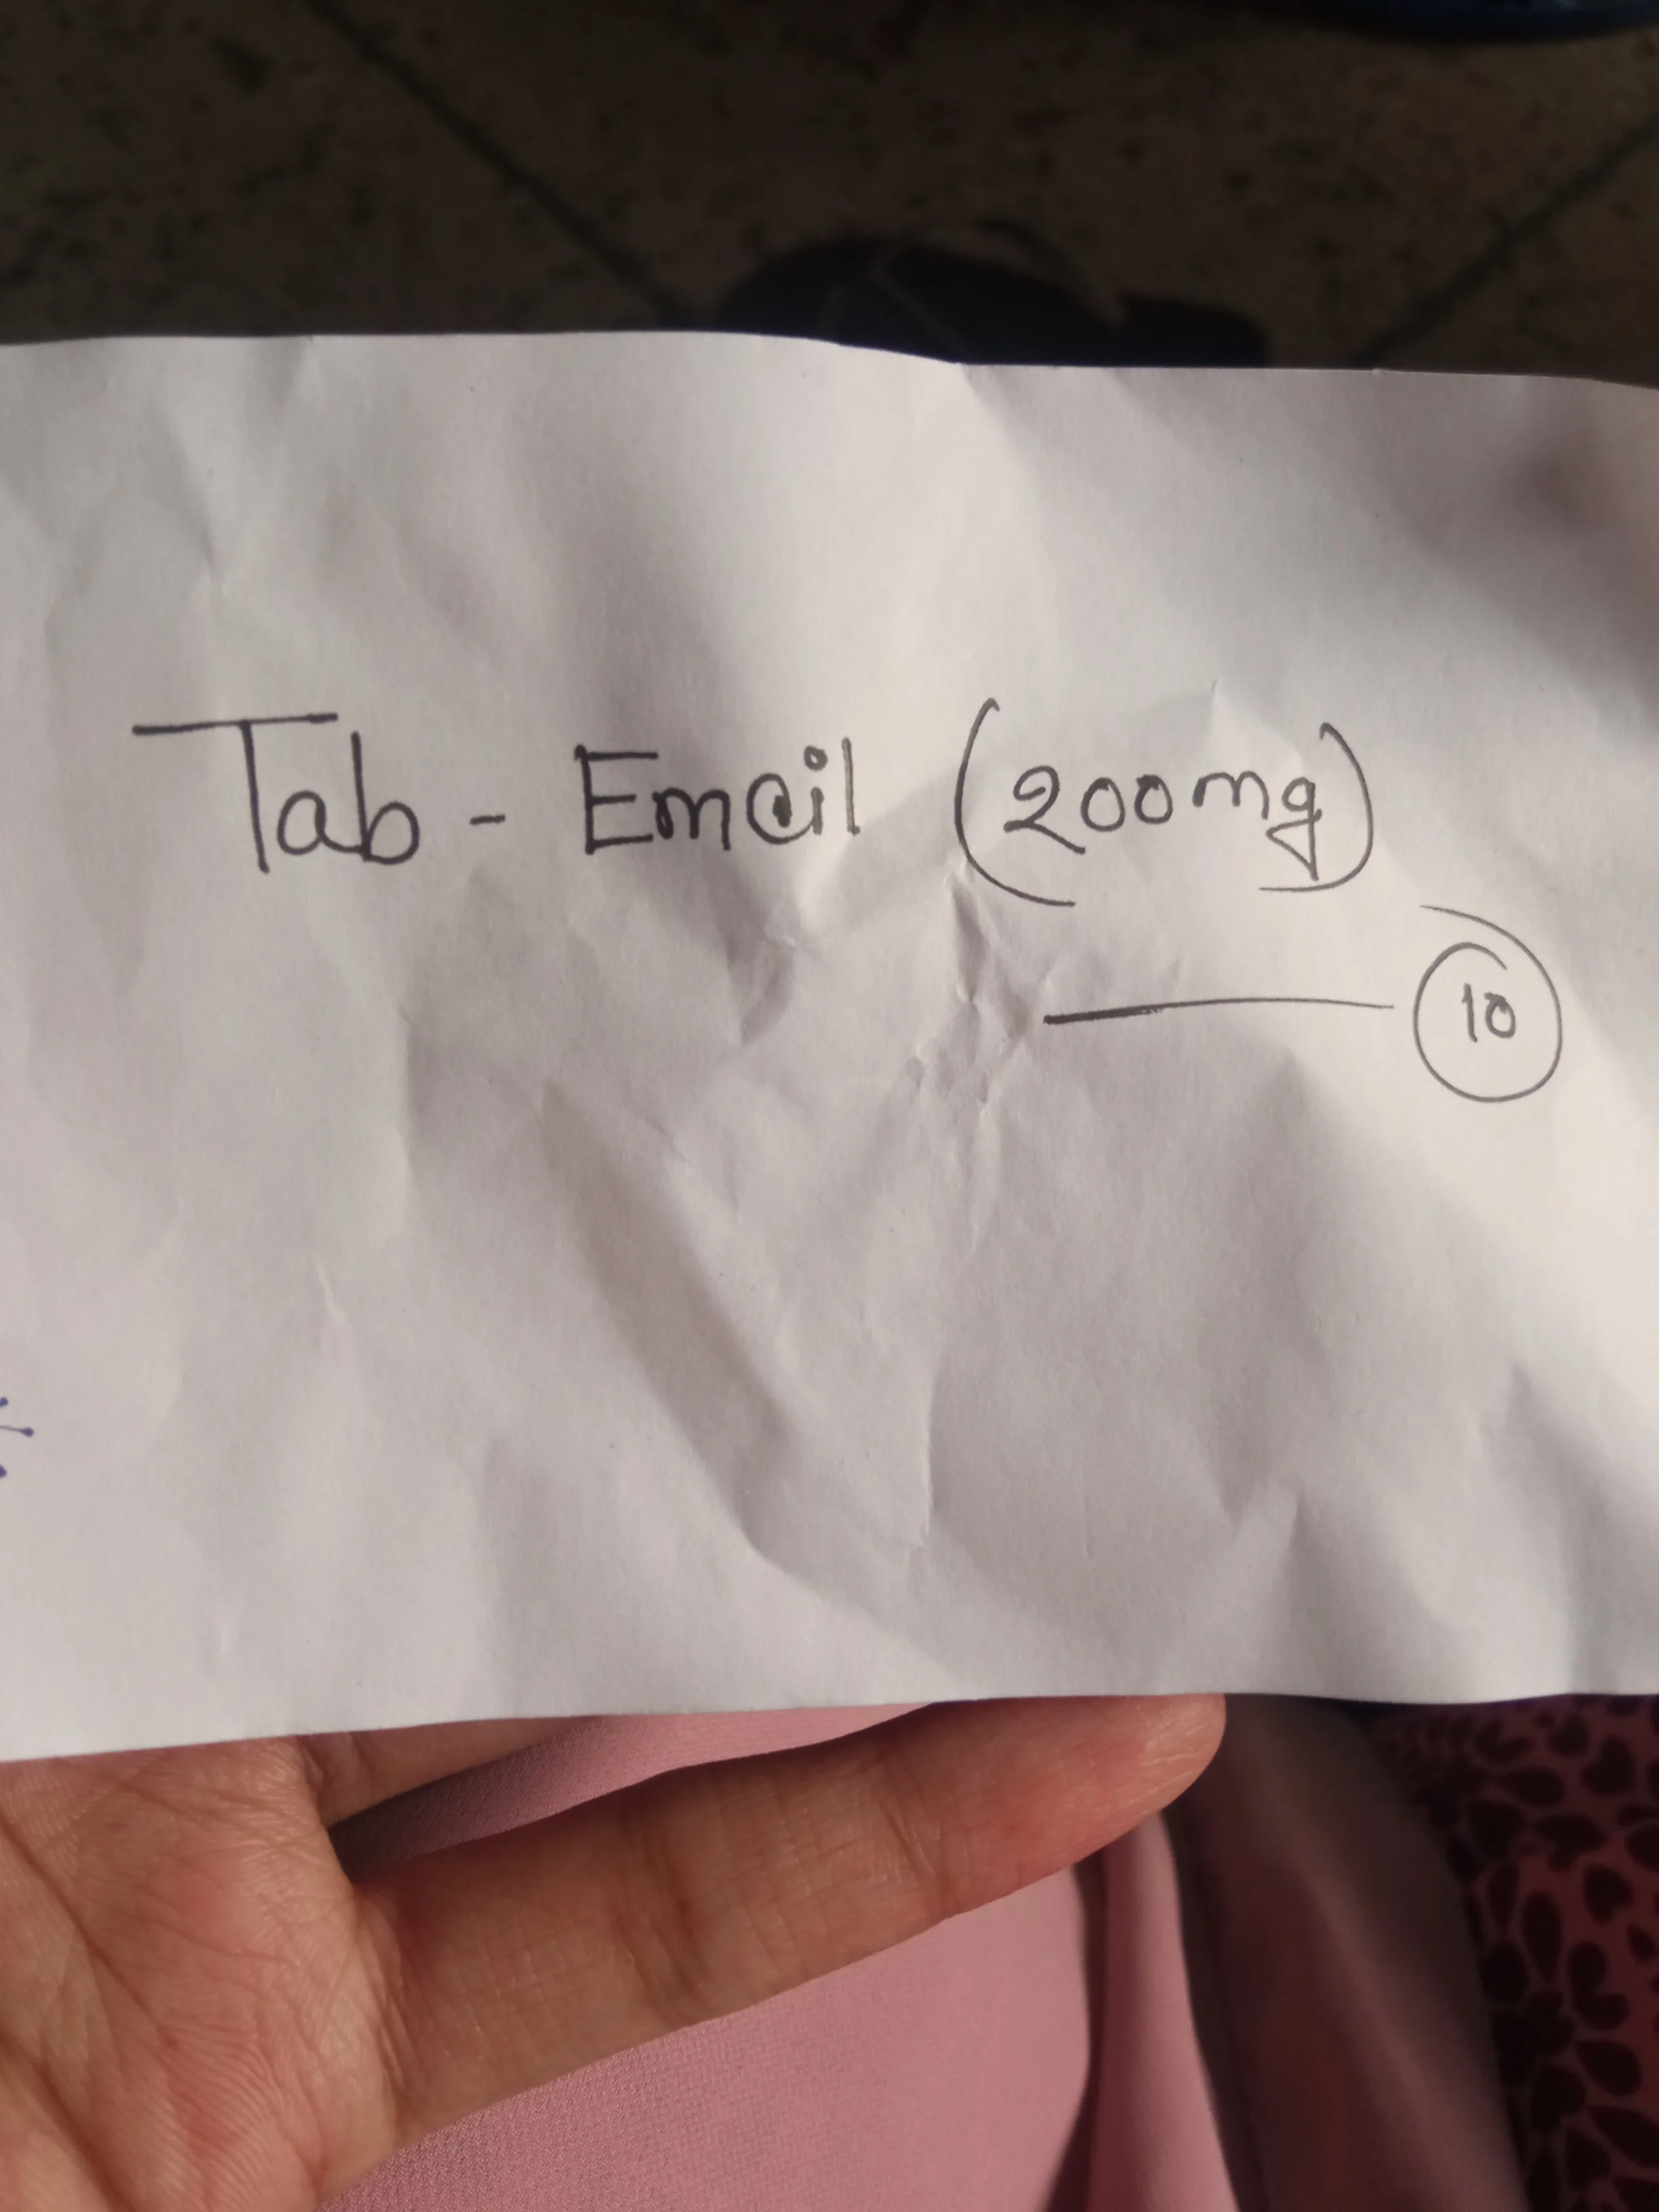 Tab - Emcil (200mg)
10